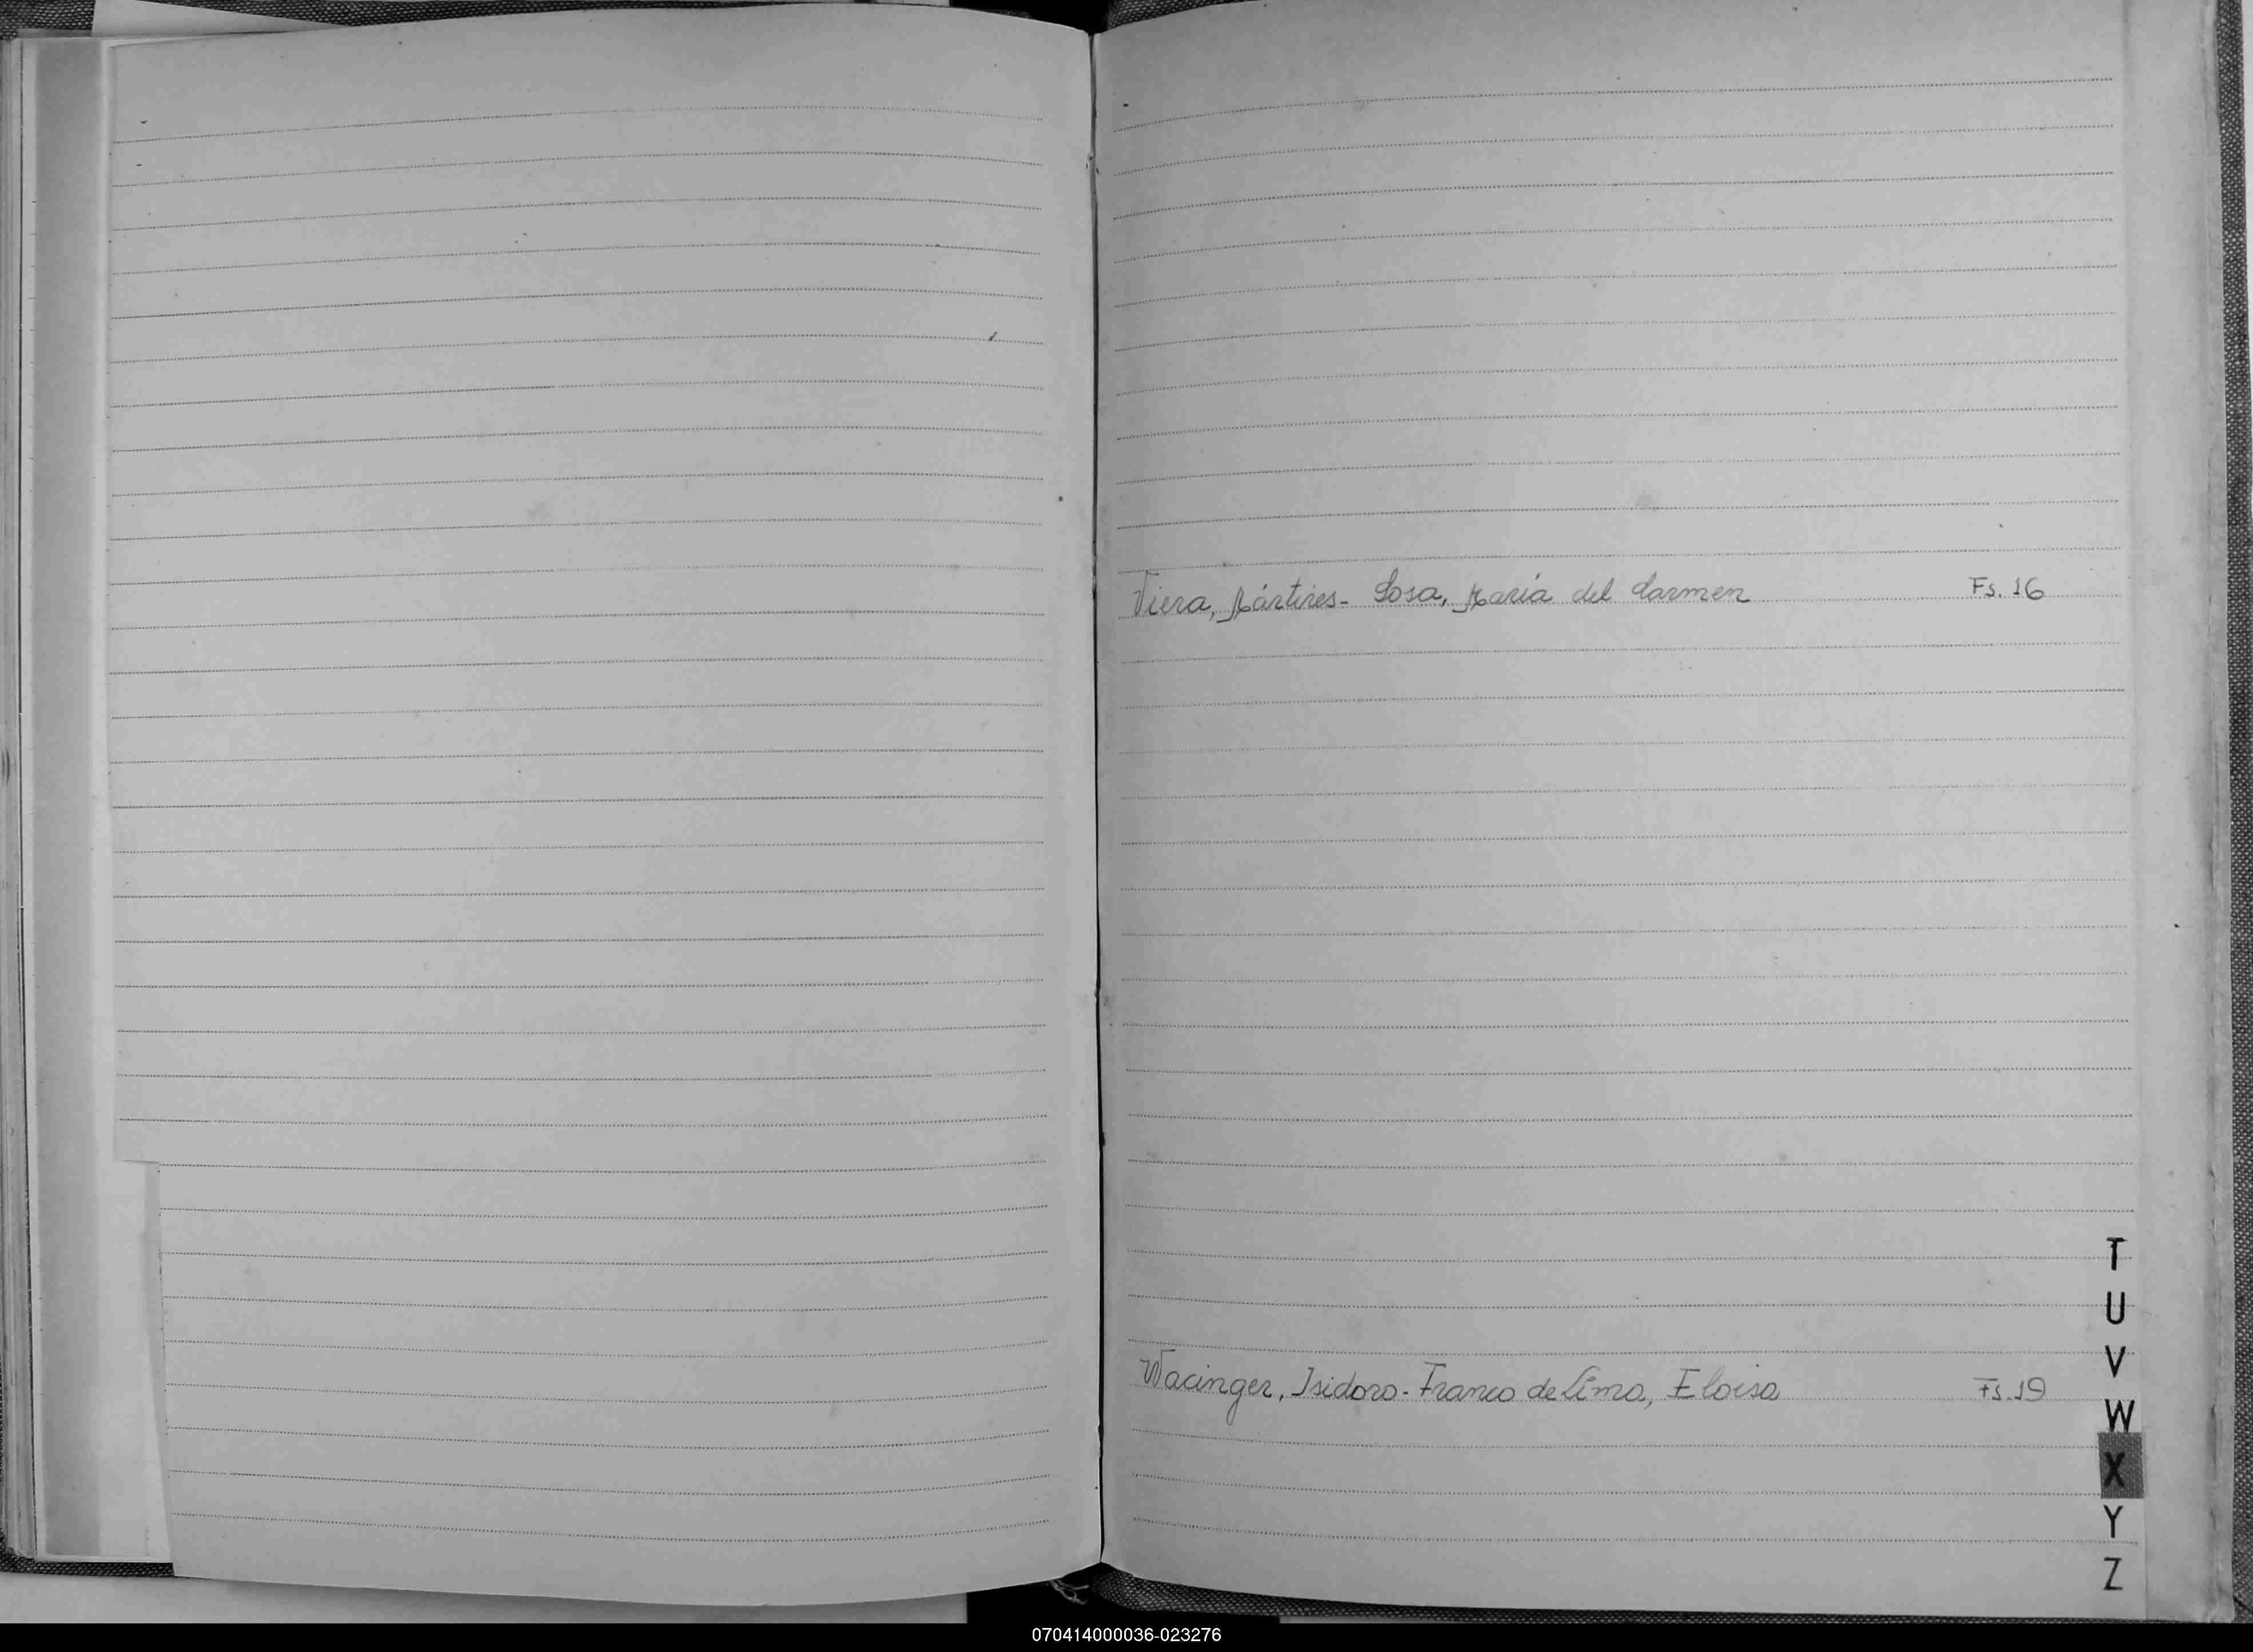 Viera, Mártires- Sosa, María del Carmen Fs. 16
T
U
V
Wacinger, Isidoro- Franco de Lima, Eloisa Fs. 19
W
X
Y
Z
070414000036-023276